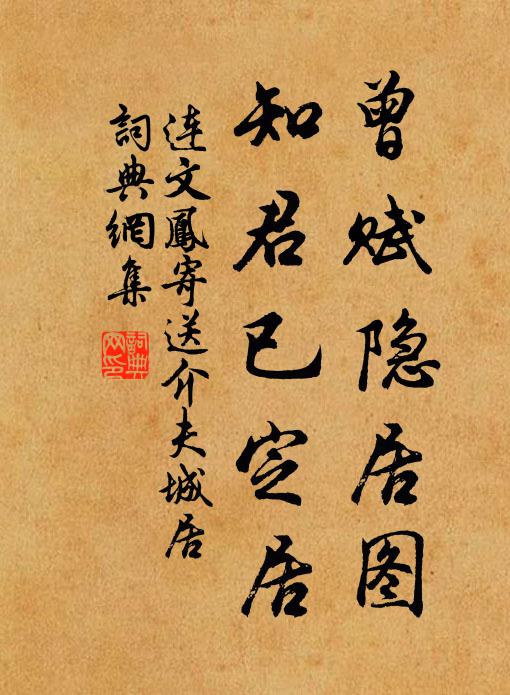 曾赋隐居图
知君已定居
连文鳳寄送介夫城居
詞典網集
詞典网印